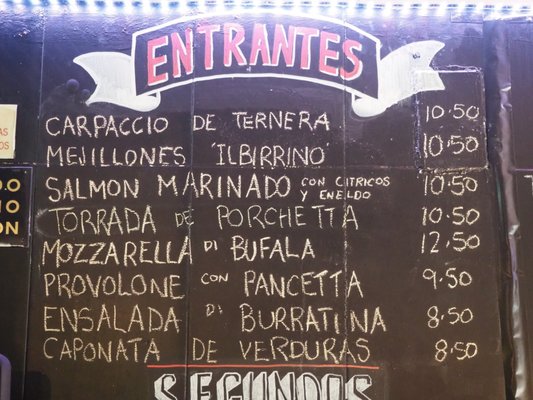 ENTRANTES
CARPACCIO DE TERNERA 10.50
MEJILLONES 'ILBIRRINO' 10.50
SALMON MARINADO CON CITRICOS Y ENELDO 10.50
TORRADA DE PORCHETTA 10.50
MOZZARELLA DI BUFALA 12,50
PROVOLONE CON PANCETTA 9.50
ENSALADA DI BURRATINA 8.50
CAPONATA DE VERDURAS 8.50
SEGUNDOS